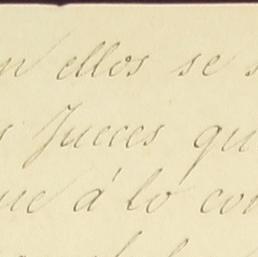 n ellos se s
s Jueces qu
ue á lo con